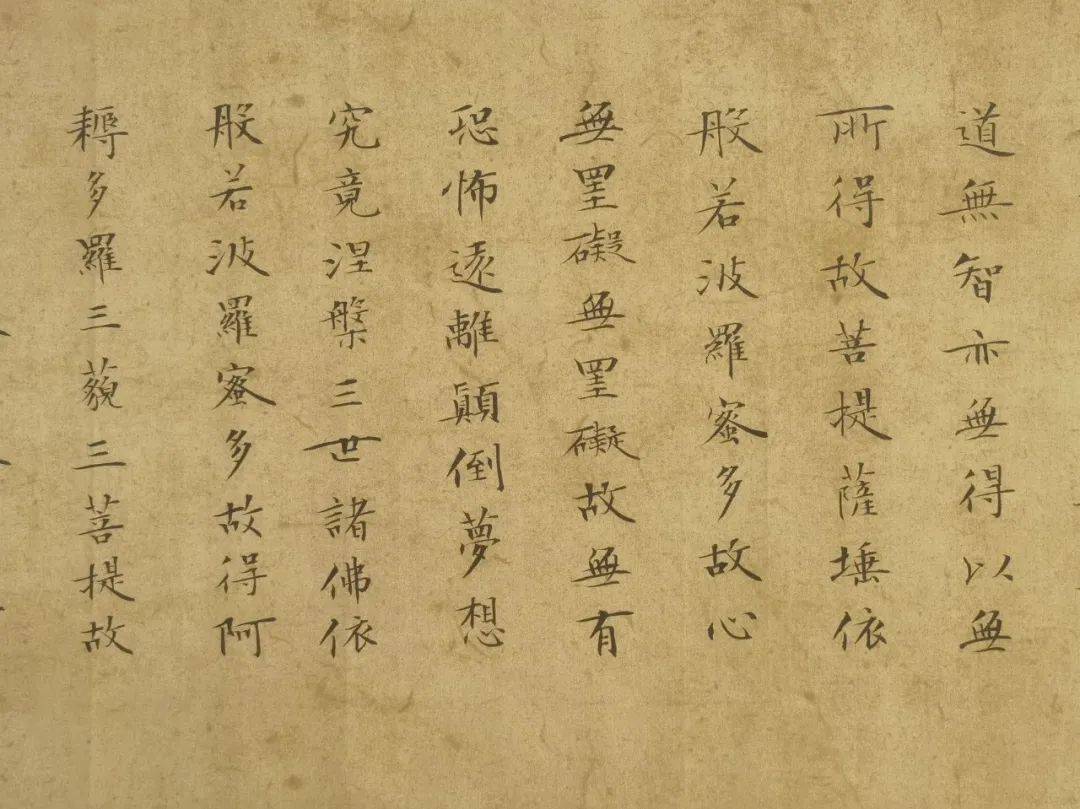 道無智亦無得以無
所得故菩提薩埵依
般若波羅蜜多故心
無罣礙無罣礙故無有
恐怖遠離顛倒夢想
究竟涅槃三世諸佛依
般若波羅蜜多故得阿
耨多羅三藐三菩提故